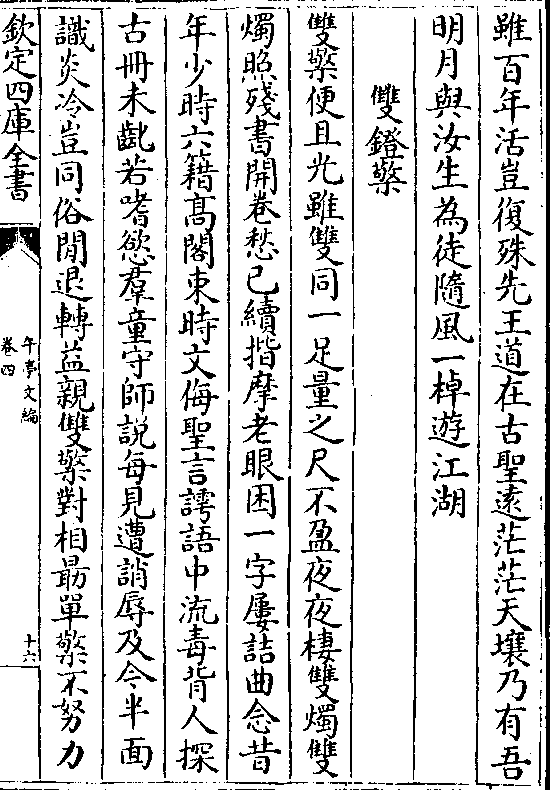 雖百年活豈復殊先王道在古聖逺茫茫天壤乃有吾
明月與汝生為徒隨風一棹遊江湖
雙鐙檠
雙檠便且光雖雙同一足量之尺不盈夜夜棲雙燭雙
燭照殘書開卷愁已續揩摩老眼困一字屢詰曲念昔
年少時六籍髙閣束時文侮聖言謣語中流毒背人探
古冊未齔若嗜慾羣童守師説每見遭誚辱及今半面
識炎冷豈同俗閒退轉益親雙檠對相朂單檠不努力
欽定四庫全書
午亭文編
卷四
十六